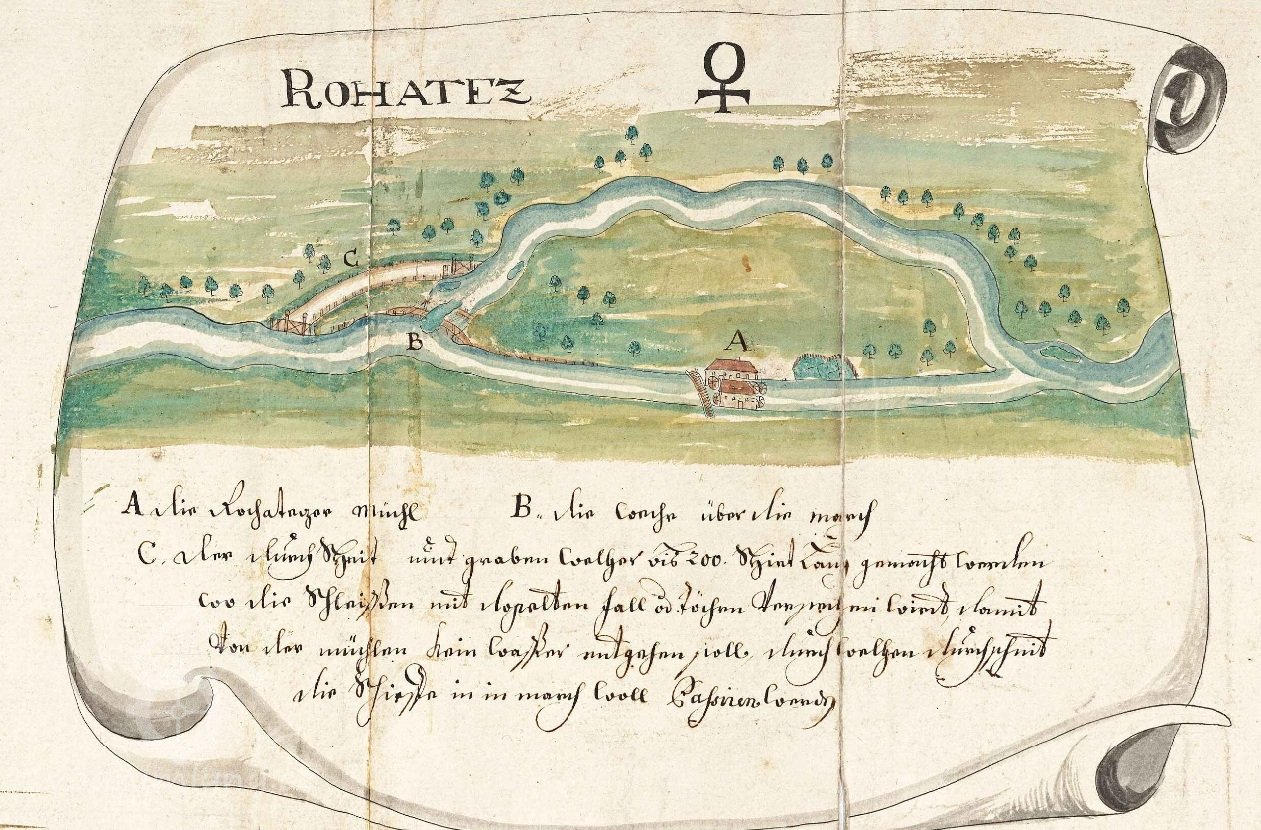 ROHATEZ ♀
C
B
A
A die Rohatezer Mühl B. die Wehr über die march
C. der durch Schnit und graben welher bis 200. Schrit Lang gemacht werden
wo die Schleißen mit dopelten fall od. Töchen Versehen wird, damit
Von der mühlen kein waßer entgehen soll, durch welhen durchschnit
die Schieffe in march woll Passiren werden